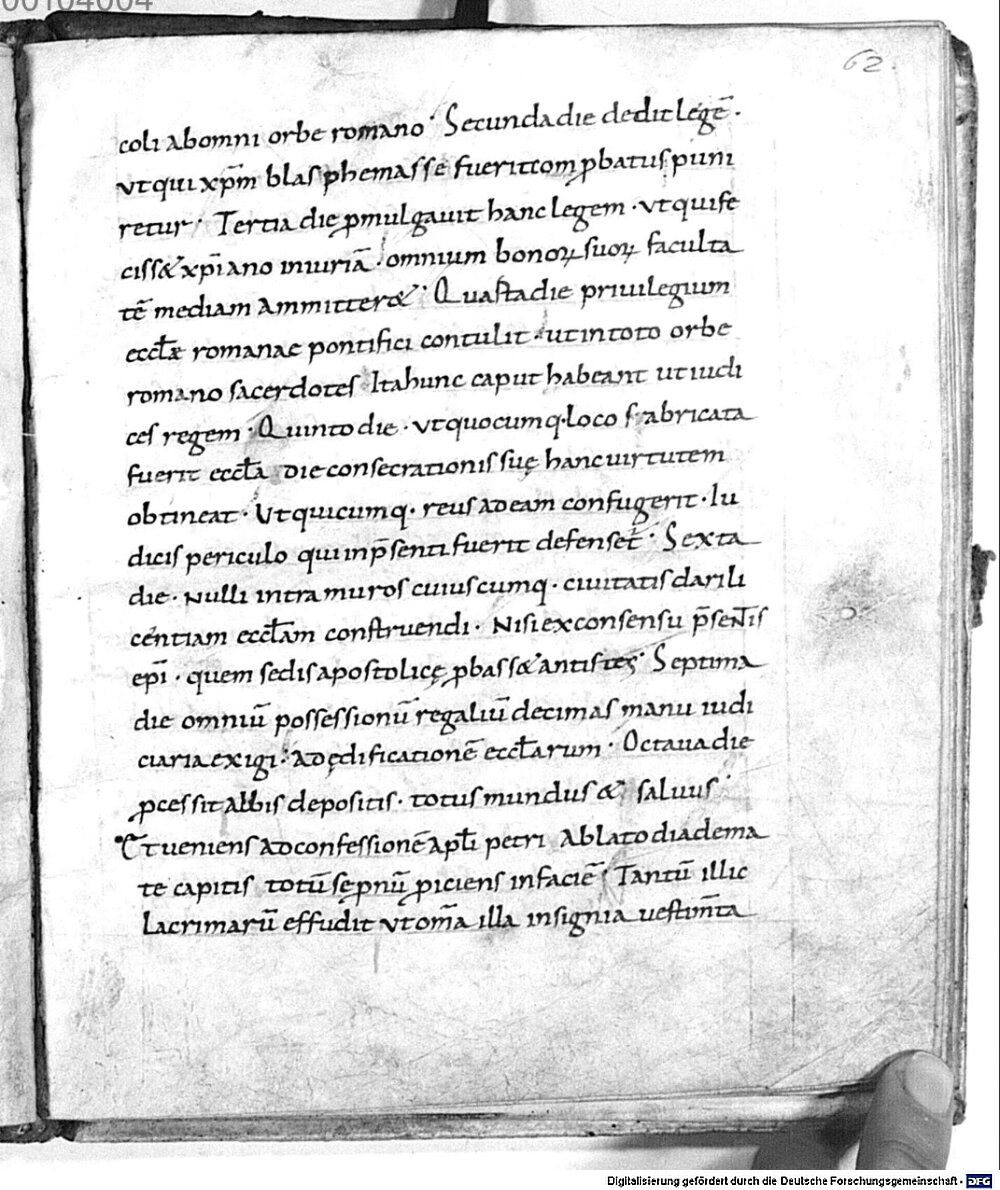 00104004
62.
coli ab omni orbe romano· Secunda die dedit legē·
ut qui xp̄m blasphemasse fuerit comꝓbatus puni
retur· Tertia die ꝓmulgauit hanc legem· ut qui fe
ciss& xp̄iano iniuriā· omnium bonoꝝ suoꝝ faculta
tē mediam ammitter&· Quarta die priuilegium
eccłæ romanae pontifici contulit· ut in toto orbe
romano sacerdotes Ita hunc caput habeant ut iudi
ces regem· Quinto die· ut quocumq· loco fabricata
fuerit eccła die consecrationis suę hanc uirtutem
obtineat· Ut quicumq· reus ad eam confugerit· Iu
dicis periculo qui in p̄senti fuerit defenset̄· Sexta
die· Nulli intra muros cuiuscumq· ciuitatis dari li
centiam eccłam construendi· Nisi ex consensu p̄sentis
epī· quem sedis apostolicę ꝓbass& antistes· Septima
die omniū possessionū regaliū decimas manu iudi
ciaria exigi· ad ędificationē eccłarum· Octaua die
ꝓcessit albis depositis· totus mundus & saluus·
Et ueniens ad confessionē apłi petri Ablato diadema
te capitis totū se ꝓnū ꝓiciens in faciē· Tantū illic
lacrimarū effudit ut om̄a illa insignia uestim̄ta
Digitalisierung gefördert durch die Deutsche Forschungsgemeinschaft - DFG